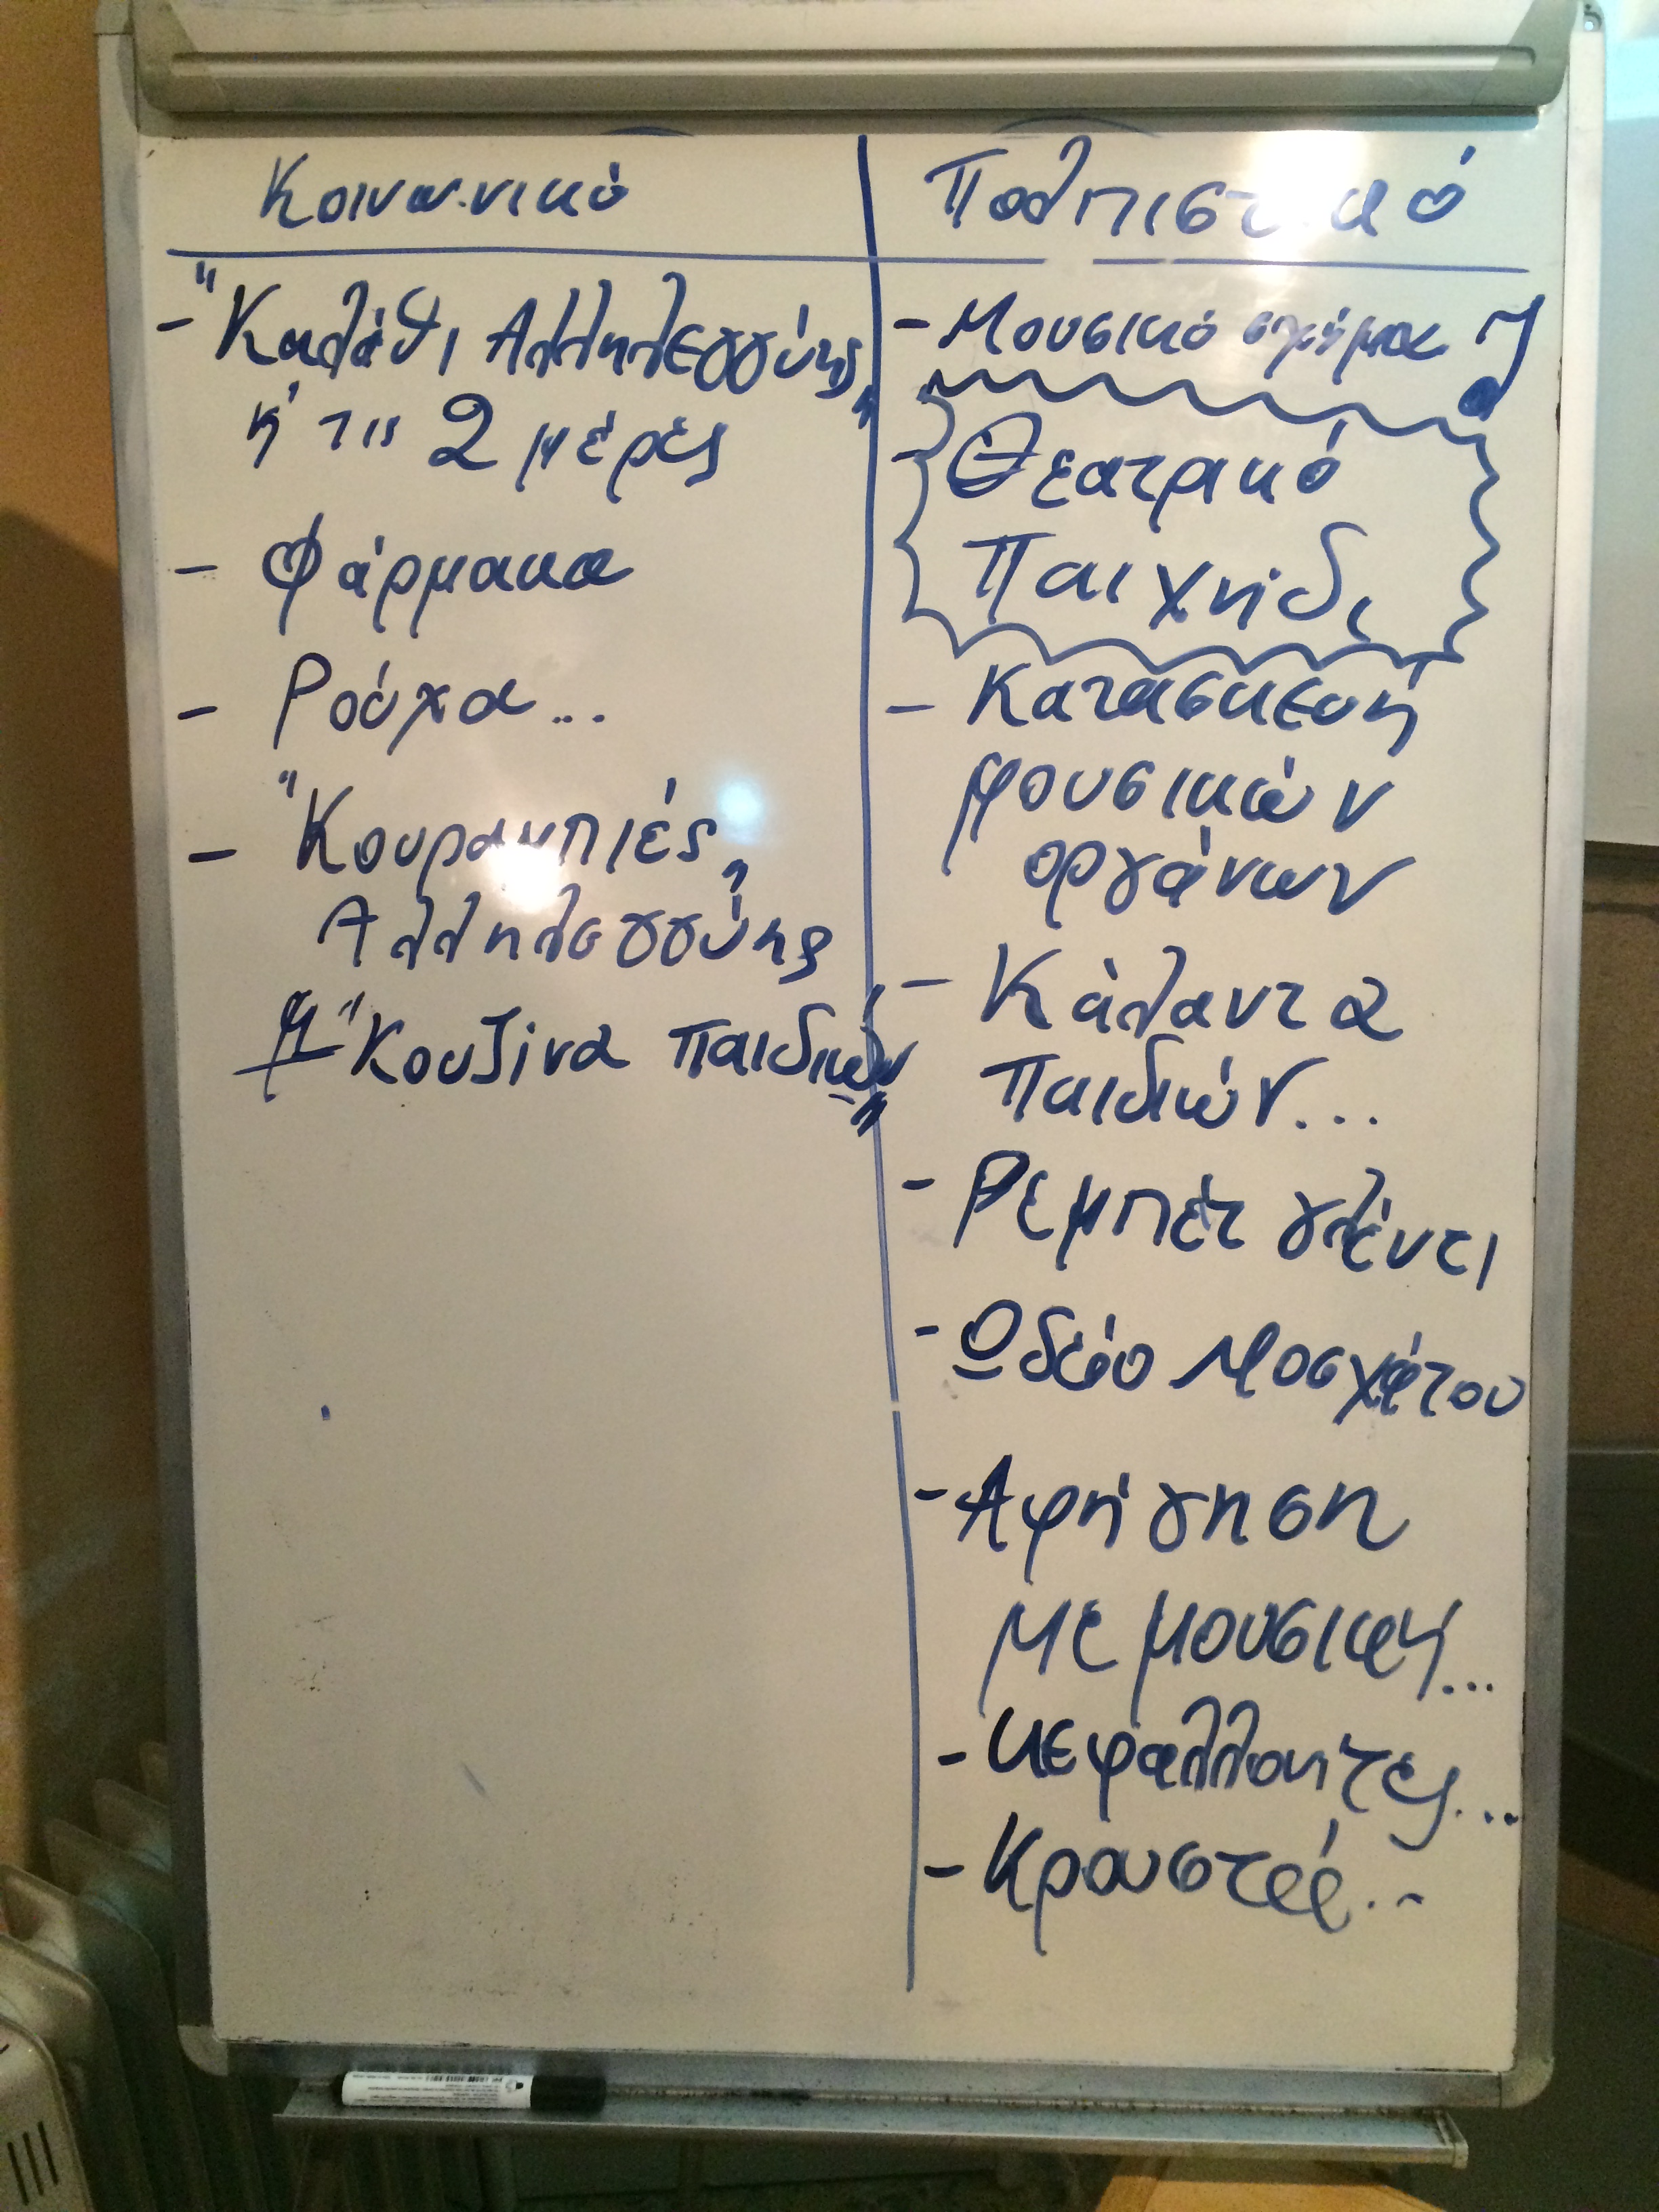 Κοινωνικό
- "Καλάθι Αλληλεγγύης"
κ' τις 2 μέρες
- Φάρμακα
- Ρούχα...
- "Κουραμπιές"
Αλληλεγγύης
"Κουζίνα παιδιών"
Πολιτιστικό
- Μουσικό σχήμα
- Θεατρικό
Παιχνίδι
- Κατασκευή
μουσικών
οργάνων
- Κάλαντα
Παιδιών...
- Ρεμπέτ γλέντι
- Ωδείο Μοσχάτου
- Αφήγηση
με μουσική...
- Κεφαλλονίτες...
- Κρουστά...